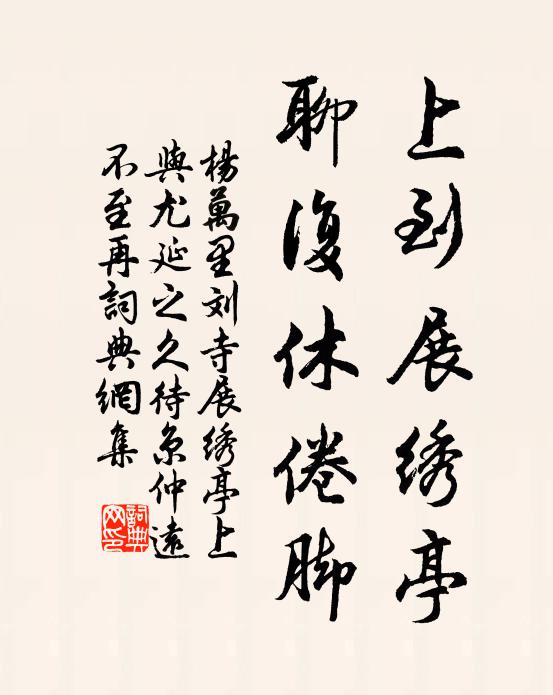 上到展绣亭
聊復休倦脚
楊萬里刘寺展绣亭上
與尤延之久待京仲遠
不至再詞典網集
詞典网印